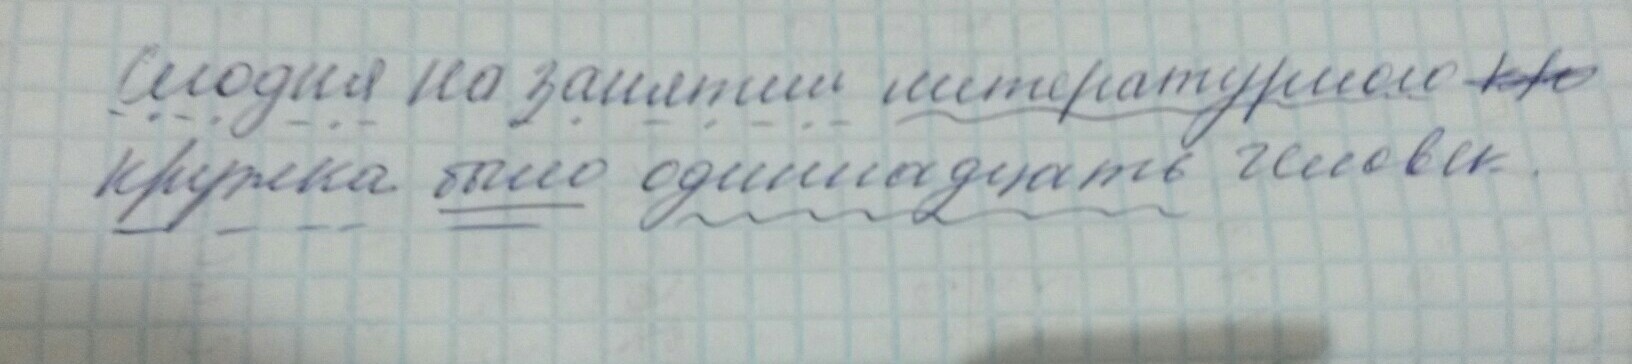 Сегодня на занятии литературного кр
кружка было одиннадцать человек.